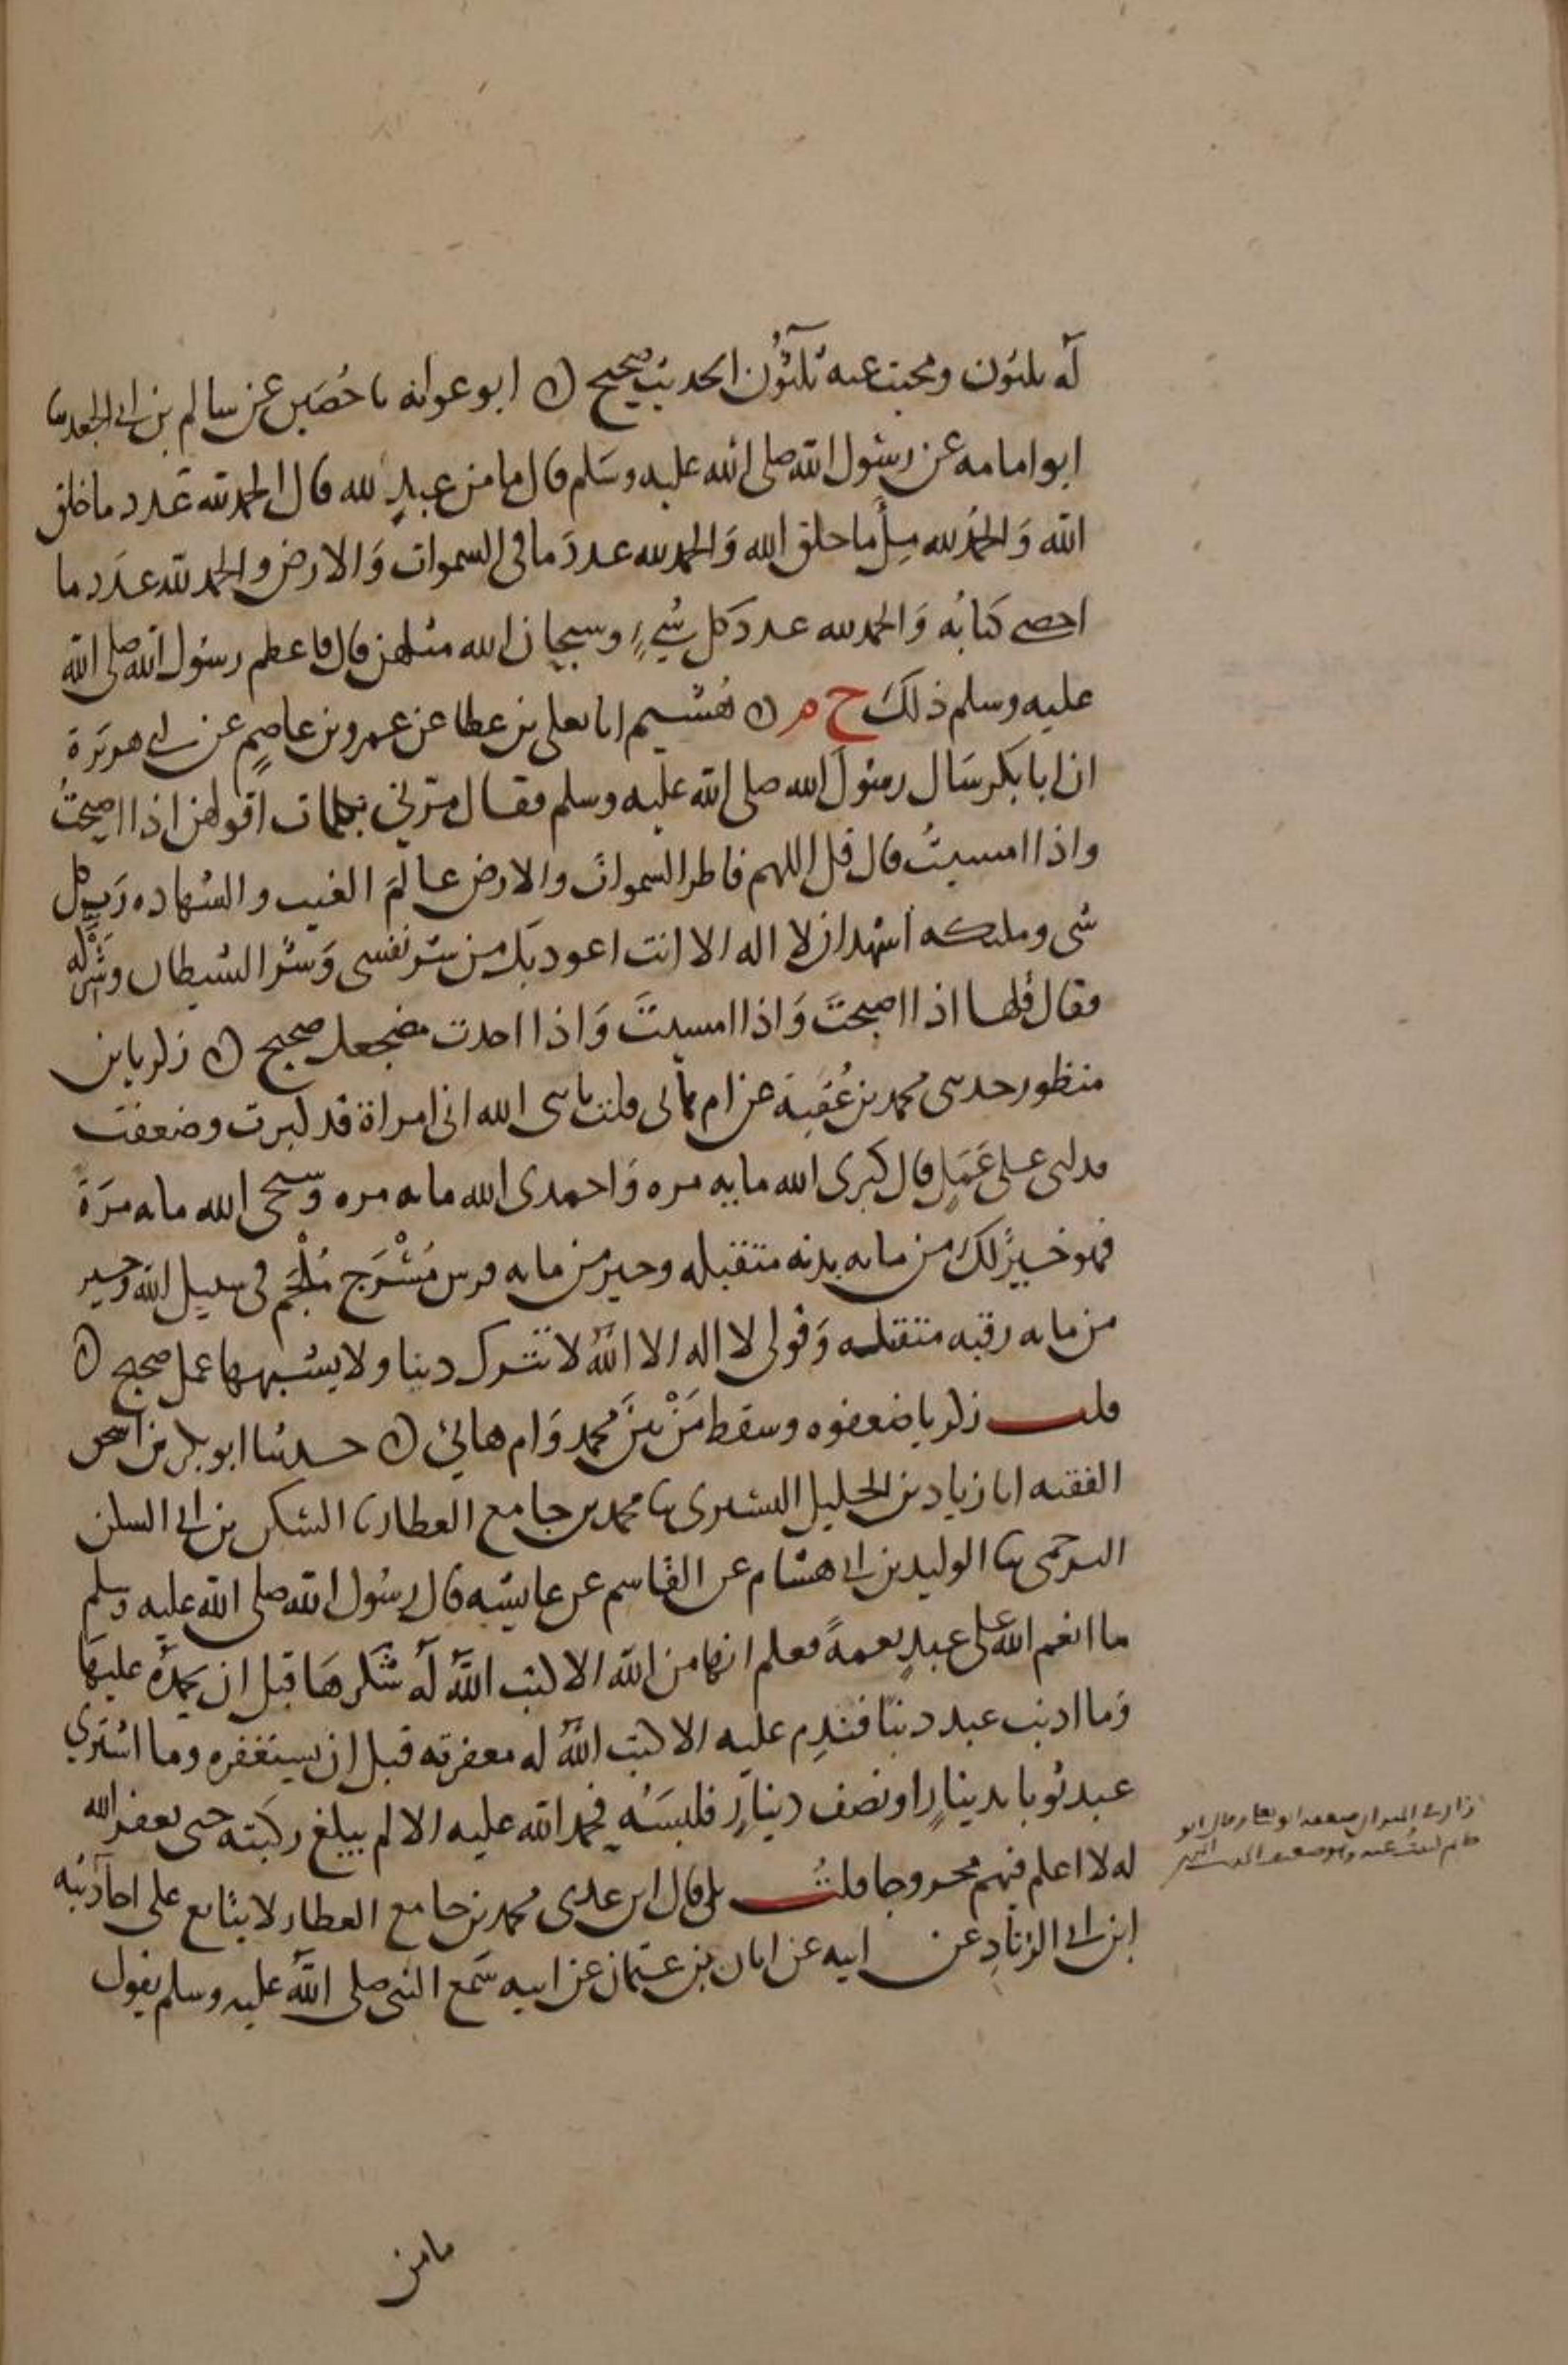 له ثلثون ومحيت عنه ثلثون الحديث صحيح ابو عوانه نا حُصَين عن سالم بن ابي الجعد نا
ابو امامه عن رسول الله صلى الله عليه وسلم قال ما من عبدٍ لله قال الحمد لله عدد ما خلق
الله وَالحمد لله مِلأ ما خلق الله وَالحمد لله عددَ ما في السموات وَالارض والحمد لله عدَد ما
احصى كتابُه وَالحمد لله عددَ كل شيءٍ وسبحان الله مثلهن قال فاعظم رسول الله صلى الله
عليه وسلم ذلك خ م هُشيم انا يعلى بن عطا عن عمرو بن عاصمٍ عن ابي هريَرة
ان ابا بكر سَال رسول الله صلى الله عليه وسلم فقال مرني بكلمات اقولهن اذا اصبحتُ
واذا امسيتُ قال قل اللهم فاطر السموات والارض عالمَ الغيب والشهاده رَب كل
شي ومليكه اشهد ان لا اله الا انت اعوذ بك من شر نفسي وَشر الشيطان وشركه
فقال قلها اذا اصبحتَ وَاذا امسيتَ وَاذا اخذت مضجعك صحيح زكريا بن
منظور حدثني محمد بن عُقبَة عن ام هاني قلت يا نبي الله اني امراة قد كبرت وضعفت
فدلني على عَمَلٍ قال كبري الله مايه مره وَاحمدي الله مايه مره وَسبحي الله مايه مرَة
فهو خيرٌ لك من مايه بدنه متقبله وخير من مايه فرس مُسْرَج مُلْجَم في سبيل الله وخير
من مايه رقبه متقبله وَقولي لا اله الا الله لا تترك ذنبا ولا يشبهها عمل صحيح
قلت زكريا ضعفوه وسقط مَنْ بينَ محمد وَام هانئ حدثنا ابو بكر بن اسحق
الفقيه انا زياد بن الخليل التستري ثنا محمد بن جامع العطار نا السكن بن ابي السكن
البرجمي ثنا الوليد بن ابي هشام عن القاسم عن عايشه قال رسول الله صلى الله عليه وسلم
ما انعم الله على عبدٍ نعمةً فعلم انها من الله الا كتب الله له شكرهَا قبل ان يحمدَه عليهَا
وَما اذنب عبد ذنبًا فندِم عليه الا كتب الله له مغفرته قبل ان يستغفره وما اشترى
عبد ثوبا بدينارٍ او نصف دينارٍ فلبسَه فحمد الله عليه الا لم يبلغ ركبَته حتى يغفر الله
له لا اعلم فيهم مجروحا قلتُ بلى قال ابن عدي محمد بن جامع العطار لا يتابع على احاديثه
ابن ابي الزنادِ عن ابيه عن ابان بن عثمان عن ابيه سَمع النبي صلى الله عليه وسلم يقول
ما من